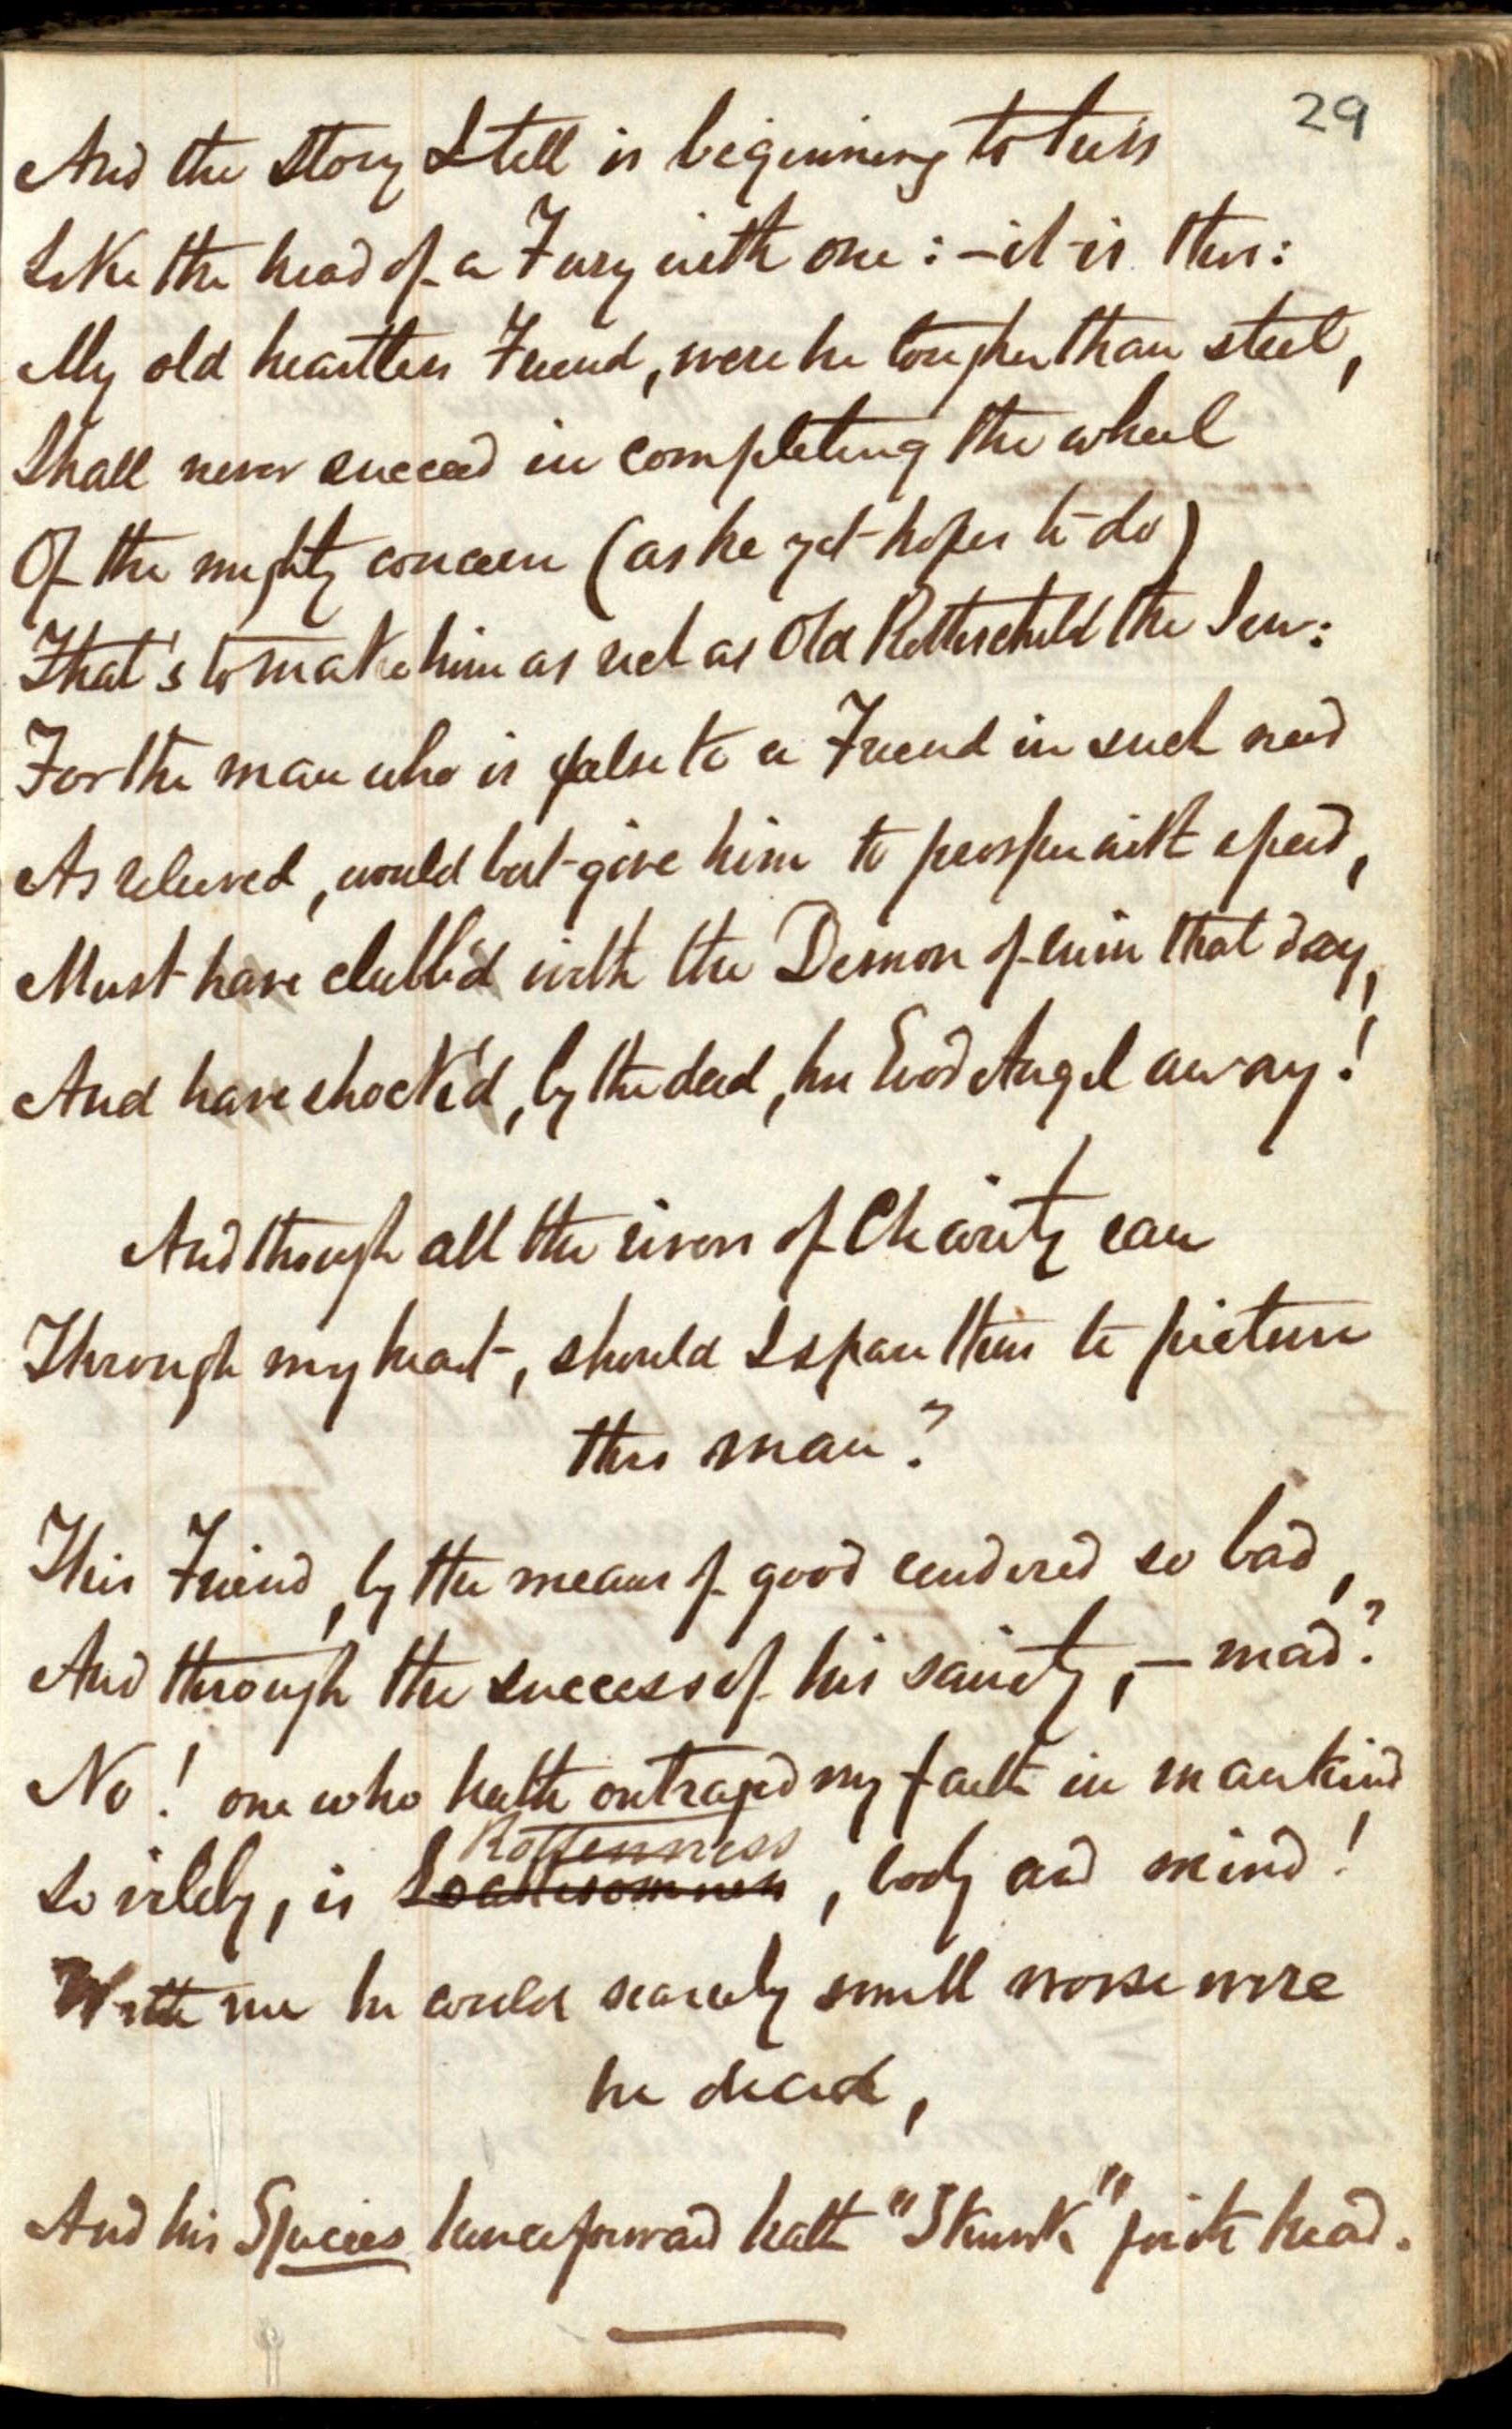 29
And the story I tell is beginning to hiss
Like the head of a Fury with one :—it is this:
My old heartless Friend, were he tougher than steel,
Shall never succeed in completing the wheel
Of the mighty concern (as he yet hopes to do)
That's to make him as rich as Old Rothschild the Jew:
For the man who is false to a Friend in such need
As relieved, would but give him to prosper with speed,
Must have clubb'd with the Demon of ruin that day,
And have shock'd, by the deed, his Good Angel away!
And though all the rivers of Charity ran
Through my heart, should I spare them to picture
this man?
This Friend, by the means of good rendered so bad,
And through the success of his sanity,—mad?
No! one who hath outraged my faith in mankind
So vilely, is Loathsomeness, body and mind!
Rottenness
With me he could scarcely smell worse were
he dead,
And his Species henceforward hath "Skunk" for its head.